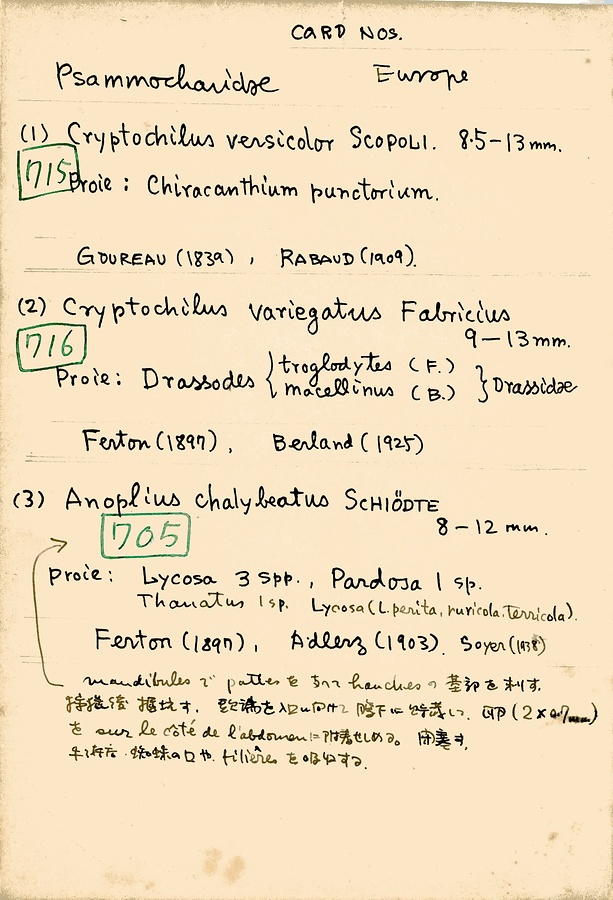 CARD NOS.
Psammocharidae Europe
(1) Cryptochilus versicolor SCOPOLI. 8.5-13 mm.
715
Proie : Chiracanthium punctorium.
GOUREAU (1839) , RABAUD (1909).
(2) Cryptochilus variegatus Fabricius
9-13 mm.
716
Proie : Drassodes { troglodytes (F.) macellinus (B.) } Drassidae
Ferton (1897) , Berland (1925)
(3) Anoplius chalybeatus SCHIÖDTE
8-12 mm.
705
proie : Lycosa 3 spp. , Pardosa 1 sp.
Thanatus 1 sp. Lycosa (L. perita, ruricola, terricola).
Ferton (1897) , Adlerz (1903). Soyer (1938)
mandibules で pattes を hanches の 基部を
後 を入口に向けて 下に して. 卵 (2×0.7mm)
を sur le côté de l'abdomen に附着せしめる。 閉塞す.
蜘蛛の口や filières を吸収する.